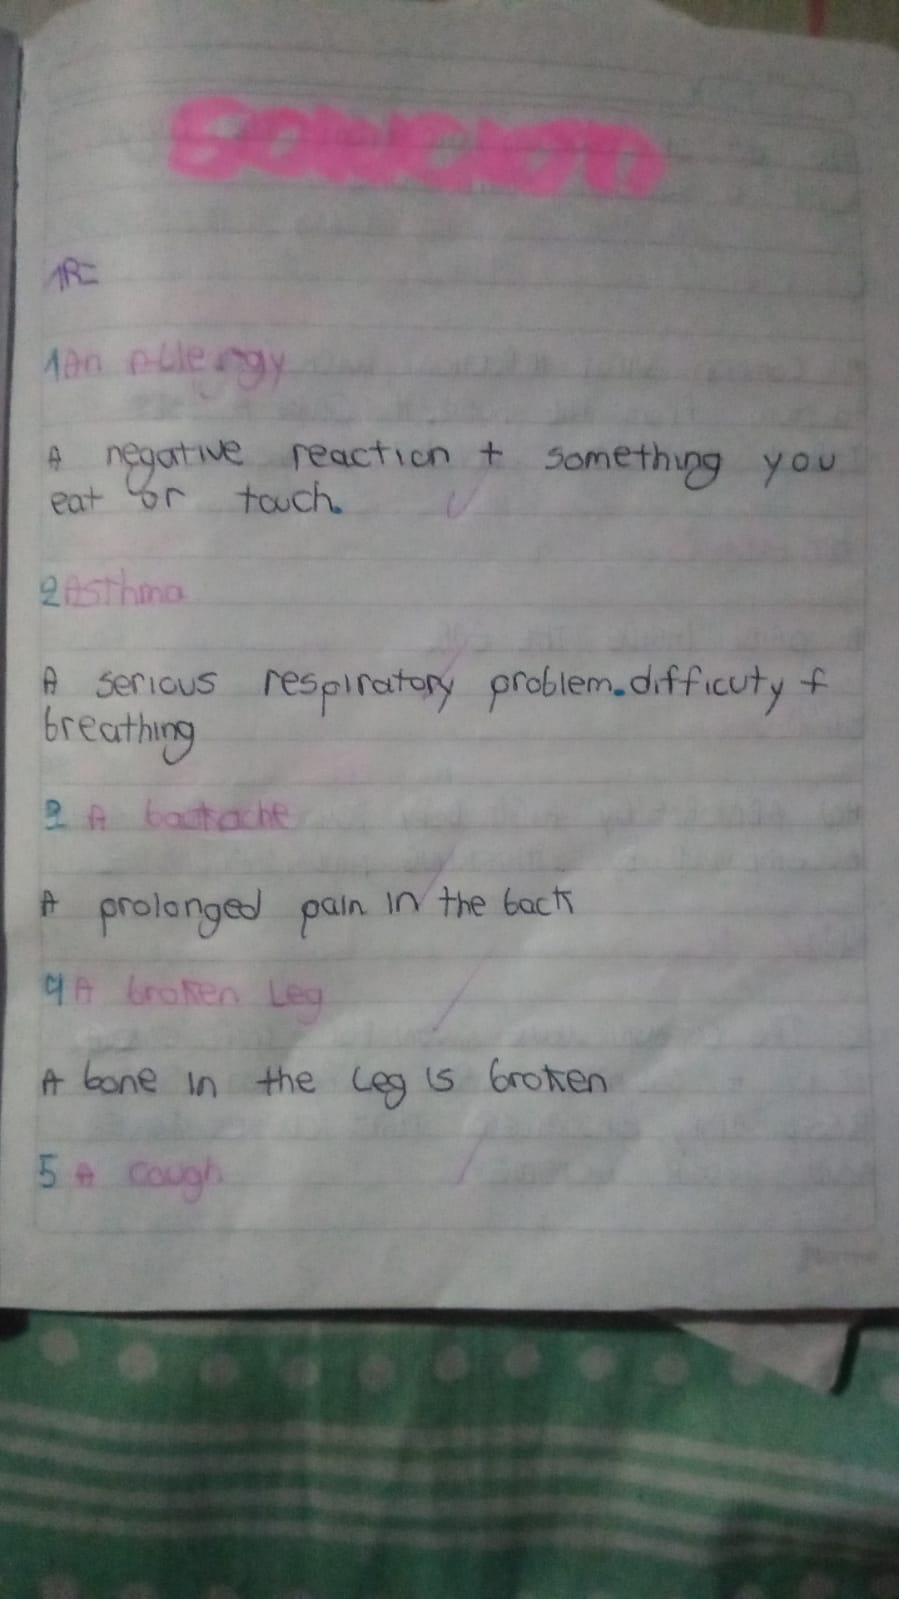 Solucion
1R=
1 An Allergy
A negative reaction t something you
eat or touch.
2 Asthma
A serious respiratory problem. difficuty f
breathing
3 A backache
A prolonged pain in the back
4 A broken Leg
A bone in the Leg is broken
5 A cough